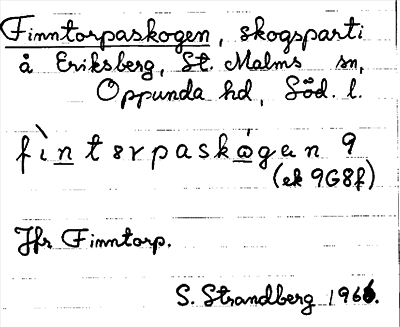 Finntorpaskogen, skogsparti
å Eriksberg, St. Malms sn,
Oppunda hd, Söd. l.
fìntɘrpaskógɘn 9
(ek 9G8f)
Jfr Finntorp.
S. Strandberg 1966.